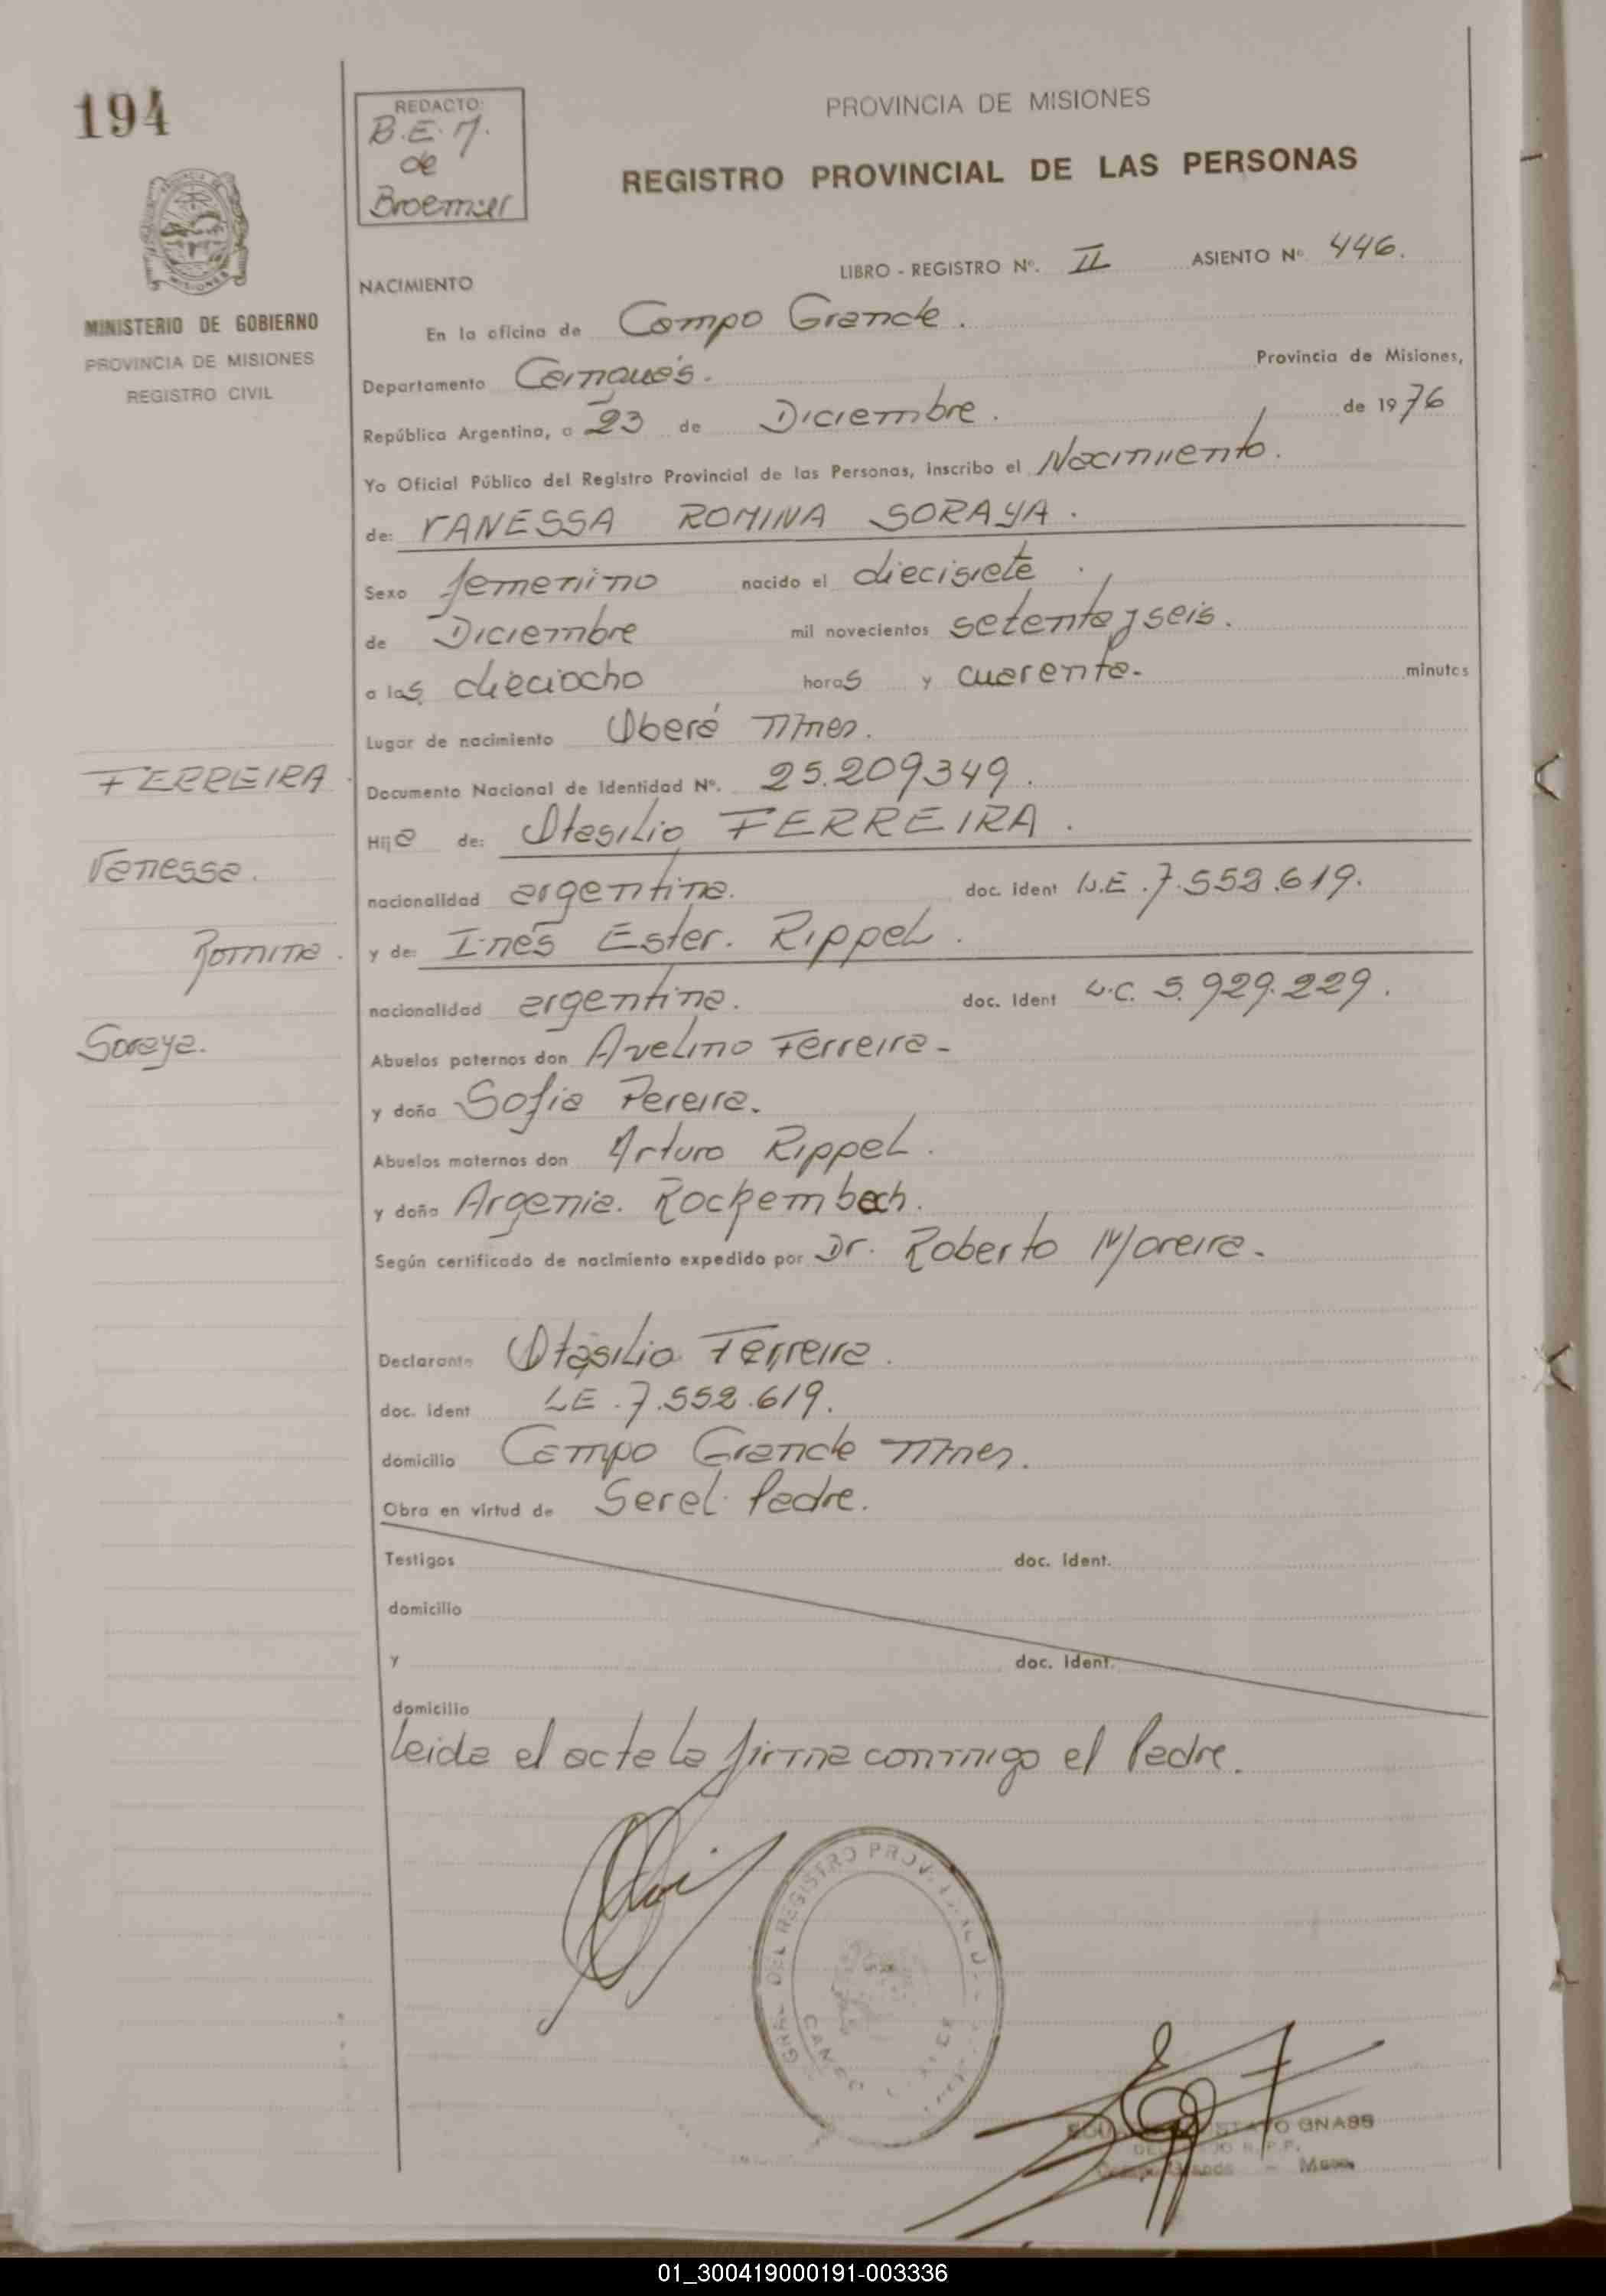 194
REDACTO:
B.E.M.
de
Broemser
PROVINCIA DE MISIONES
REGISTRO PROVINCIAL DE LAS PERSONAS
MINISTERIO DE GOBIERNO
PROVINCIA DE MISIONES
REGISTRO CIVIL
LIBRO - REGISTRO Nº. II ASIENTO Nº 446.
NACIMIENTO
En la oficina de Campo Grande.
Departamento Cainguás. Provincia de Misiones,
República Argentina, a 23 de Diciembre. de 1976
Yo Oficial Público del Registro Provincial de las Personas, inscribo el Nacimiento.
de: VANESSA ROMINA SORAYA.
Sexo femenino nacido el diecisiete.
de Diciembre mil novecientos setenta y seis.
a las dieciocho horas y cuarenta. minutos
Lugar de nacimiento Oberá Mnes.
FERREIRA.
Documento Nacional de Identidad Nº. 25.209349.
Hija de: Otasilio FERREIRA.
Vanessa.
nacionalidad argentina. doc. ident L.E. 7.552.619.
Romina.
y de: Inés Ester. Rippel.
nacionalidad argentina. doc. ident L.C. 5.929.229.
Soraya.
Abuelos paternos don Avelino Ferreira-
y doña Sofia Pereira.
Abuelos maternos don Arturo Rippel.
y doña Argenia. Rockembach.
Según certificado de nacimiento expedido por Dr. Roberto Moreira.
Declarante Otasilio Ferreira.
doc. ident LE. 7.552.619.
domicilio Campo Grande Mnes.
Obra en virtud de Ser el Padre.
Testigos doc. ident.
domicilio
y doc. ident.
domicilio
Leida el acta la firma conmigo el Padre.
DEL REGISTRO
GNASS
01_300419000191-003336